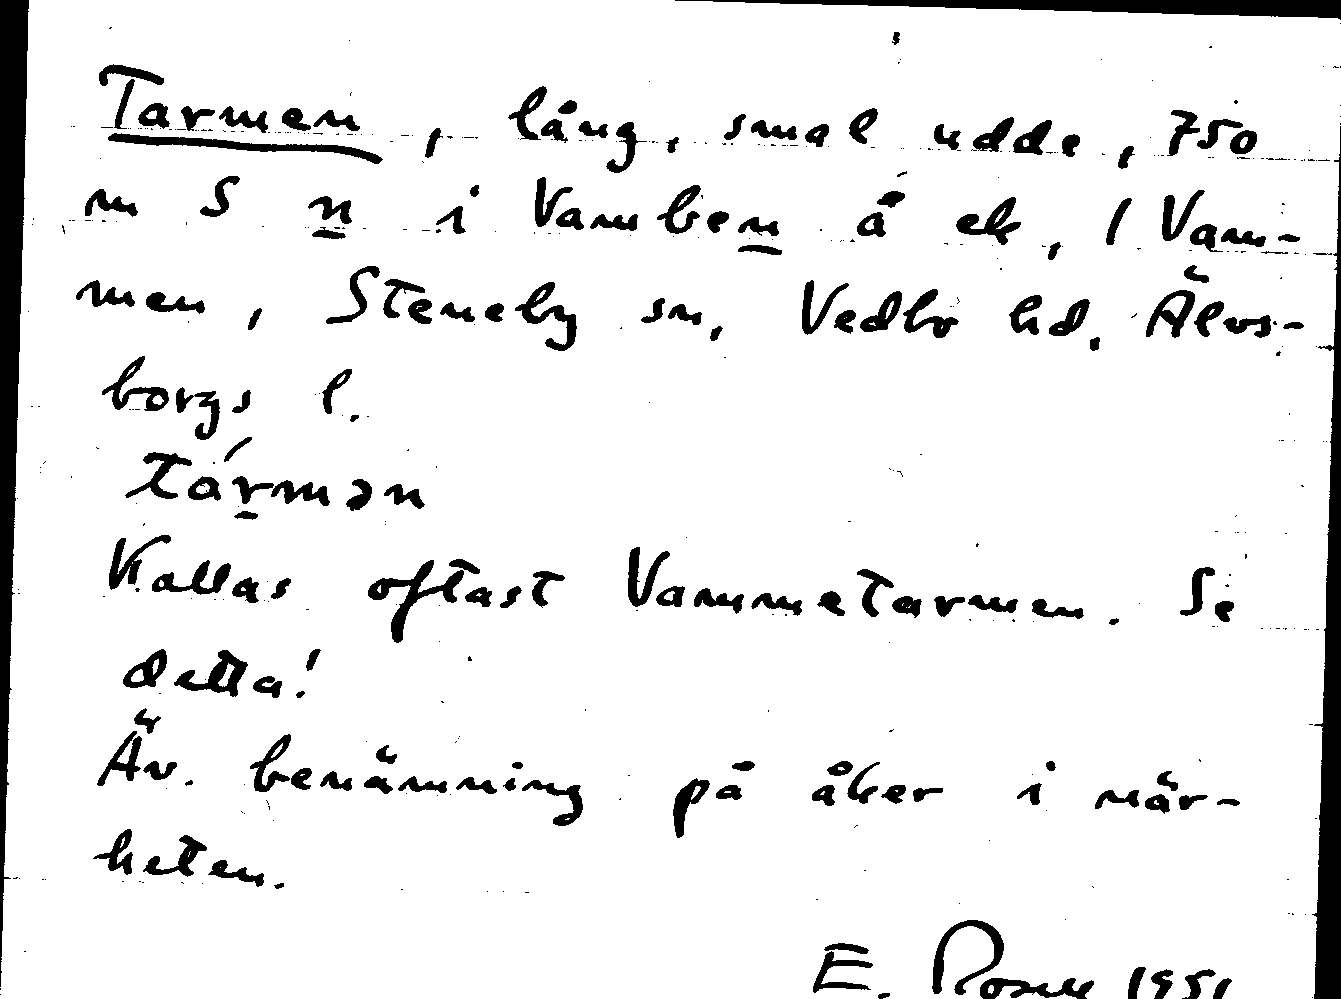 Tarmen, lång, smal udde, 750
m S n i Vamben å ek, i Vam-
men, Steneby sn, Vedbo hd. Älvs-
borgs l.
tármən
Kallas oftast Vammetarmen. Se
detta!
Äv. benämning på åker i när-
heten.
E. Rosell 1951